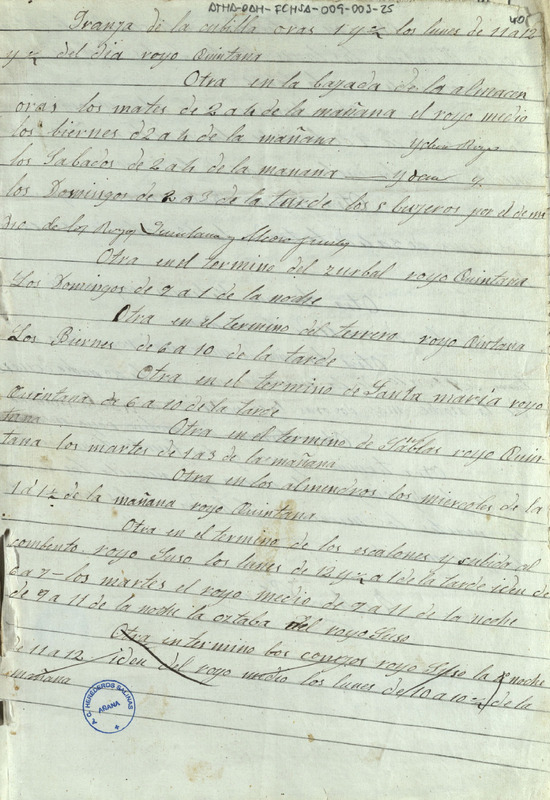 ATHA-DAH-FCHSA-009-003-25
40
Franja de la cubilla oras 1 y ½ los lunes de 11 a 12
y ½ del dia royo Quintana
Otra en la bajada de la almacen
oras los mates de 2 a 4 de la mañana el royo medio
los biernes d 2 a 4 de la mañana
los Sabados de 2 a 4 de la manana y
los Domingos de 2 a 3 de la tarde los bujeros por el de me
dio de los Royos Quintana y Medio
Otra en el termino del zurbal royo Quintana
Los Domingos de 7 a 1 de la noche
Otra en el termino del terrero royo Quintana
Los Biernes de 6 a 10 de la tarde
Otra en el termino de Santa maria royo
Quintana de 6 a 10 de la tarde
Otra en el termino de Sn blas royo Quin
tana
tana los martes de 1 a 3 de la mañana
Otra en los almendros los miercoles de la
1 a 1 ½ de la mañana royo Quintana
Otra en el termino de los escalones y subida al
combento royo Suso los lunes de 12 y ½ a 1 de la tarde iden de
6 a 7 - los martes el royo medio de 7 a 11 de la noche
de 7 a 11 de la noche la del royo Suso
Otra en termino los royo Suso la noche
de 11 a 12 iden del royo medio los lunes de 10 a 10 ½ de la
mañana
A.G. HEREDEROS SALINAS
ARANA